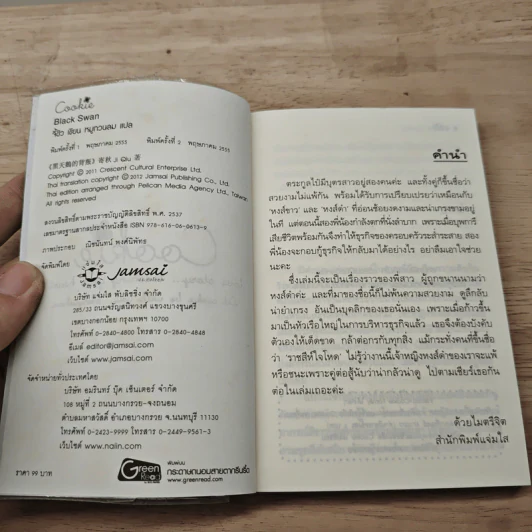 Cookie
Black Swan
จี้ชิว เขียน หมูกวนลม แปล
พิมพ์ครั้งที่ 1 พฤษภาคม 2555 พิมพ์ครั้งที่ 2 พฤษภาคม 2555
《黑天鹅的背叛》寄秋 Ji Qiu 著
Copyright © 2011 Crescent Cultural Enterprise Ltd.
Thai translation copyright © 2012 Jamsai Publishing Co., Ltd.
Thai edition arranged through Pelican Media Agency Ltd., Taiwan
All rights reserved.
สงวนลิขสิทธิ์ตามพระราชบัญญัติลิขสิทธิ์ พ.ศ. 2537
เลขมาตรฐานสากลประจำหนังสือ ISBN 978-616-06-0613-9
ภาพประกอบ ณิชนันทน์ พงศ์นิพัทธ
จัดพิมพ์โดย
Jamsai
บริษัท แจ่มใส พับลิชชิ่ง จำกัด
285/33 ถนนจรัญสนิทวงศ์ แขวงบางขุนศรี
เขตบางกอกน้อย กรุงเทพฯ 10700
โทรศัพท์ 0-2840-4800 โทรสาร 0-2840-4848
อีเมล์ editor@jamsai.com
เว็บไซต์ www.jamsai.com
จัดจำหน่ายทั่วประเทศโดย
บริษัท อมรินทร์ บุ๊ค เซ็นเตอร์ จำกัด
108 หมู่ที่ 2 ถนนบางกรวย-จงถนอม
ตำบลมหาสวัสดิ์ อำเภอบางกรวย จ.นนทบุรี 11130
โทรศัพท์ 0-2423-9999 โทรสาร 0-2449-9561-3
เว็บไซต์ www.naiin.com
ราคา 99 บาท
Green Read
พิมพ์บน
กระดาษถนอมสายตากรีนรี้ด
www.greenread.com
คำนำ
ตระกูลไป๋มีบุตรสาวอยู่สองคนค่ะ และทั้งคู่ก็ขึ้นชื่อว่า
สวยงามไม่แพ้กัน พร้อมได้รับการเปรียบเปรยว่าเหมือนกับ
'หงส์ขาว' และ 'หงส์ดำ' ที่อ่อนช้อยงดงามและน่าเกรงขามอยู่
ในที แต่ตอนนี้สองพี่น้องกำลังตกที่นั่งลำบาก เพราะเมื่อบุพการี
เสียชีวิตพร้อมกันจึงทำให้ธุรกิจของครอบครัวระส่ำระสาย สอง
พี่น้องจะกอบกู้ธุรกิจให้กลับมาได้อย่างไร อย่าลืมเอาใจช่วย
นะคะ
ซึ่งเล่มนี้จะเป็นเรื่องราวของพี่สาว ผู้ถูกขนานนามว่า
หงส์ดำค่ะ และที่มาของชื่อนี้ก็ไม่พ้นความสวยงาม ดูลึกลับ
น่ายำเกรง อันเป็นบุคลิกของเธอนั่นเอง เพราะเมื่อก้าวขึ้น
มาเป็นหัวเรือใหญ่ในการบริหารธุรกิจแล้ว เธอจึงต้องบังคับ
ตัวเองให้เด็ดขาด กล้าต่อกรกับทุกสิ่ง แม้กระทั่งคนที่ขึ้นชื่อ
ว่า 'ราชสีห์ใจโหด' ไม่รู้ว่างานนี้เจ้าหญิงหงส์ดำของเราจะแพ้
หรือชนะเพราะคู่ต่อสู้นับว่าน่ากลัวน่าดู ไปตามเชียร์เธอกัน
ต่อในเล่มเถอะค่ะ
ด้วยไมตรีจิต
สำนักพิมพ์แจ่มใส